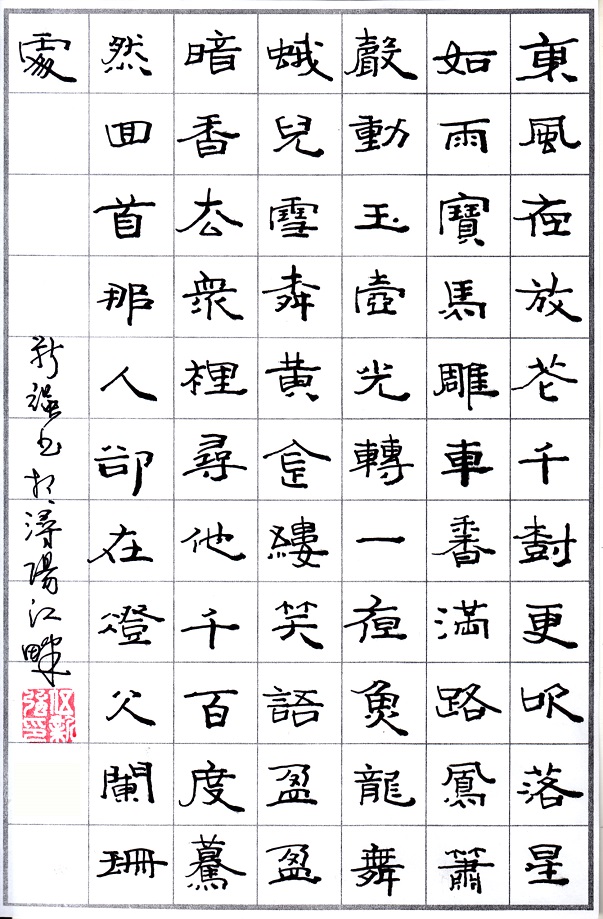 東風夜放花千樹更吹落星
如雨寶馬雕車香滿路鳳簫
聲動玉壺光轉一夜魚龍舞
蛾兒雪黃金縷笑語盈盈
暗香去眾裡尋他千百度驀
然回首那人卻在燈父闌珊
處
新強書於潯陽江畔
伍新強印